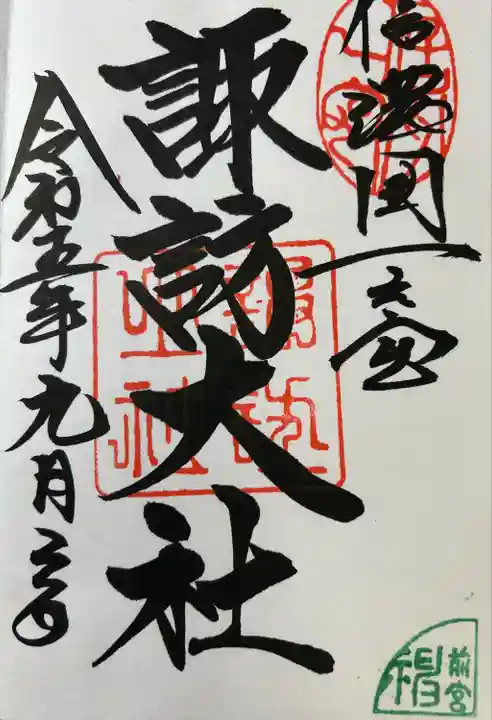 信濃國一之宮
諏訪大社
令和五年九月二二日
前宮